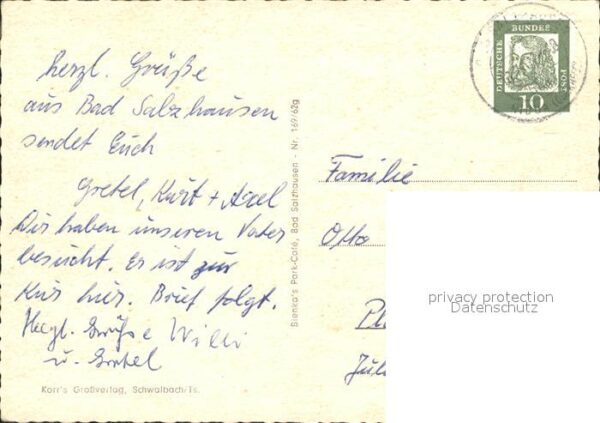 herzl. Grüße
aus Bad Salzhausen
sendet Euch
Gretel, Kurt + Axel
Wir haben unseren Vater
besucht. Er ist zur
Kur hier. Brief folgt.
Herzl. Grüße Willi
u. Gretel
Korr's Großverlag, Schwalbach/Ts.
Bienka's Park-Café, Bad Salzhausen - Nr. 169/62g
DEUTSCHE
BUNDES
POST
10
Familie
Otto
privacy protection
Datenschutz